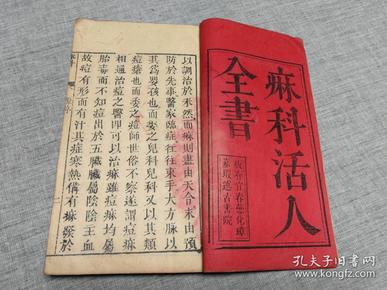 麻科活人
全書
板存宜春慈化璋
以調治於未然而麻則盡由天命未由預
防於先事醫家臨症往往束手大方脉以
其為嬰孩也而委之兒科兒科又以其類
痘瘡也而委之痘師世俗不察遂謂痘麻
相通治痘之醫即可以治麻雖痘麻均屬
胎毒而不知痘出於五臟臟屬陰陰主血
故痘有形而有汁其症寒熱俱有麻發於
孔夫子旧书网